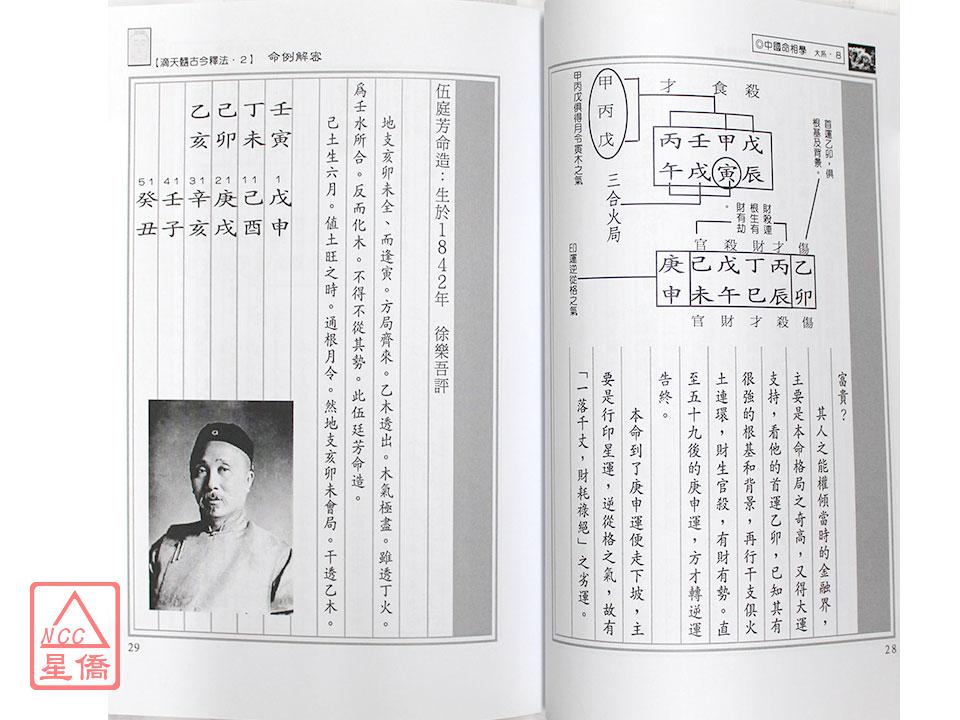 ◎中國命相學 大系・8
首運乙卯，俱
根基及背景。
才 食 殺
丙 壬 甲 戊
午 戌 寅 辰
甲丙戊
甲丙戊俱得月令寅木之氣
三合火局。
財殺連
根生有
財有劫
官 殺 財 才 傷
庚 己 戊 丁 丙 乙
申 未 午 巳 辰 卯
官 財 才 殺 傷
印運逆從格之氣
富貴？
其人之能權傾當時的金融界，
主要是本命格局之奇高，又得大運
支持，看他的首運乙卯，已知其有
很強的根基和背景，再行干支俱火
土連環，財生官殺，有財有勢。直
至五十九後的庚申運，方才轉逆運
告終。
本命到了庚申運便走下坡，主
要是行印星運，逆從格之氣，故有
「一落千丈，財耗祿絕」之劣運。
28
【滴天髓古今釋法・2】 命例解密
伍庭芳命造：生於1842年 徐樂吾評
地支亥卯未全、而逢寅。方局齊來。乙木透出。木氣極盡。雖透丁火。
爲壬水所合。反而化木。不得不從其勢。此伍廷芳命造。
己土生六月。值土旺之時。通根月令。然地支亥卯未會局。干透乙木。
壬寅
丁未
己卯
乙亥
1 戊申
11 己酉
21 庚戌
31 辛亥
41 壬子
51 癸丑
29
NCC
星僑